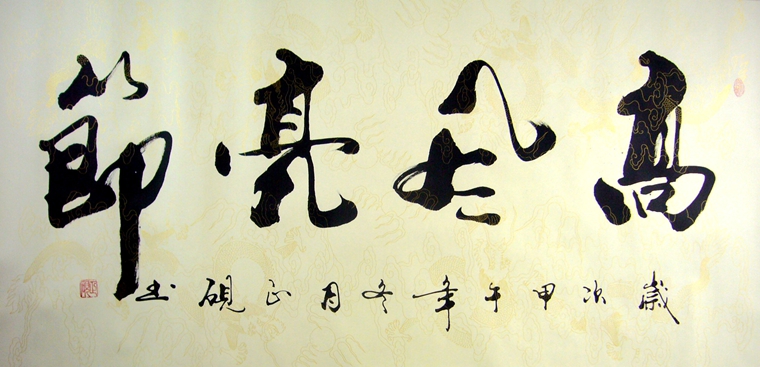 高風亮節
歲次甲午年冬月正硯書